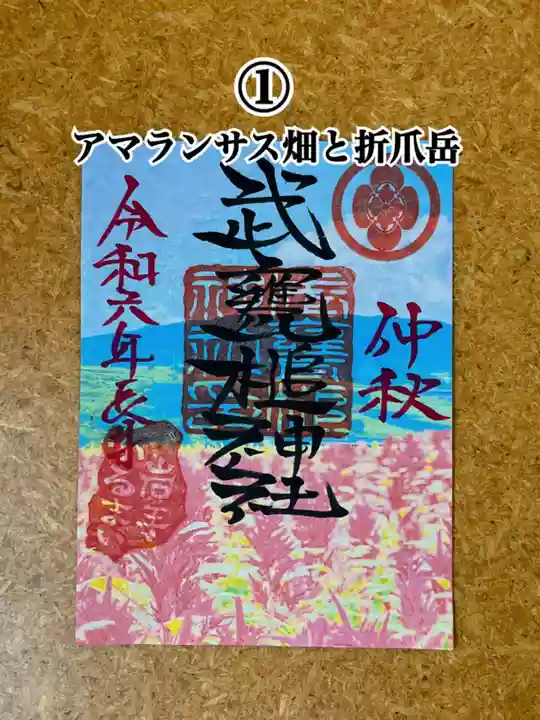 ①
アマランサス畑と折爪岳
仲秋
武甕槌神社
令和六年長月